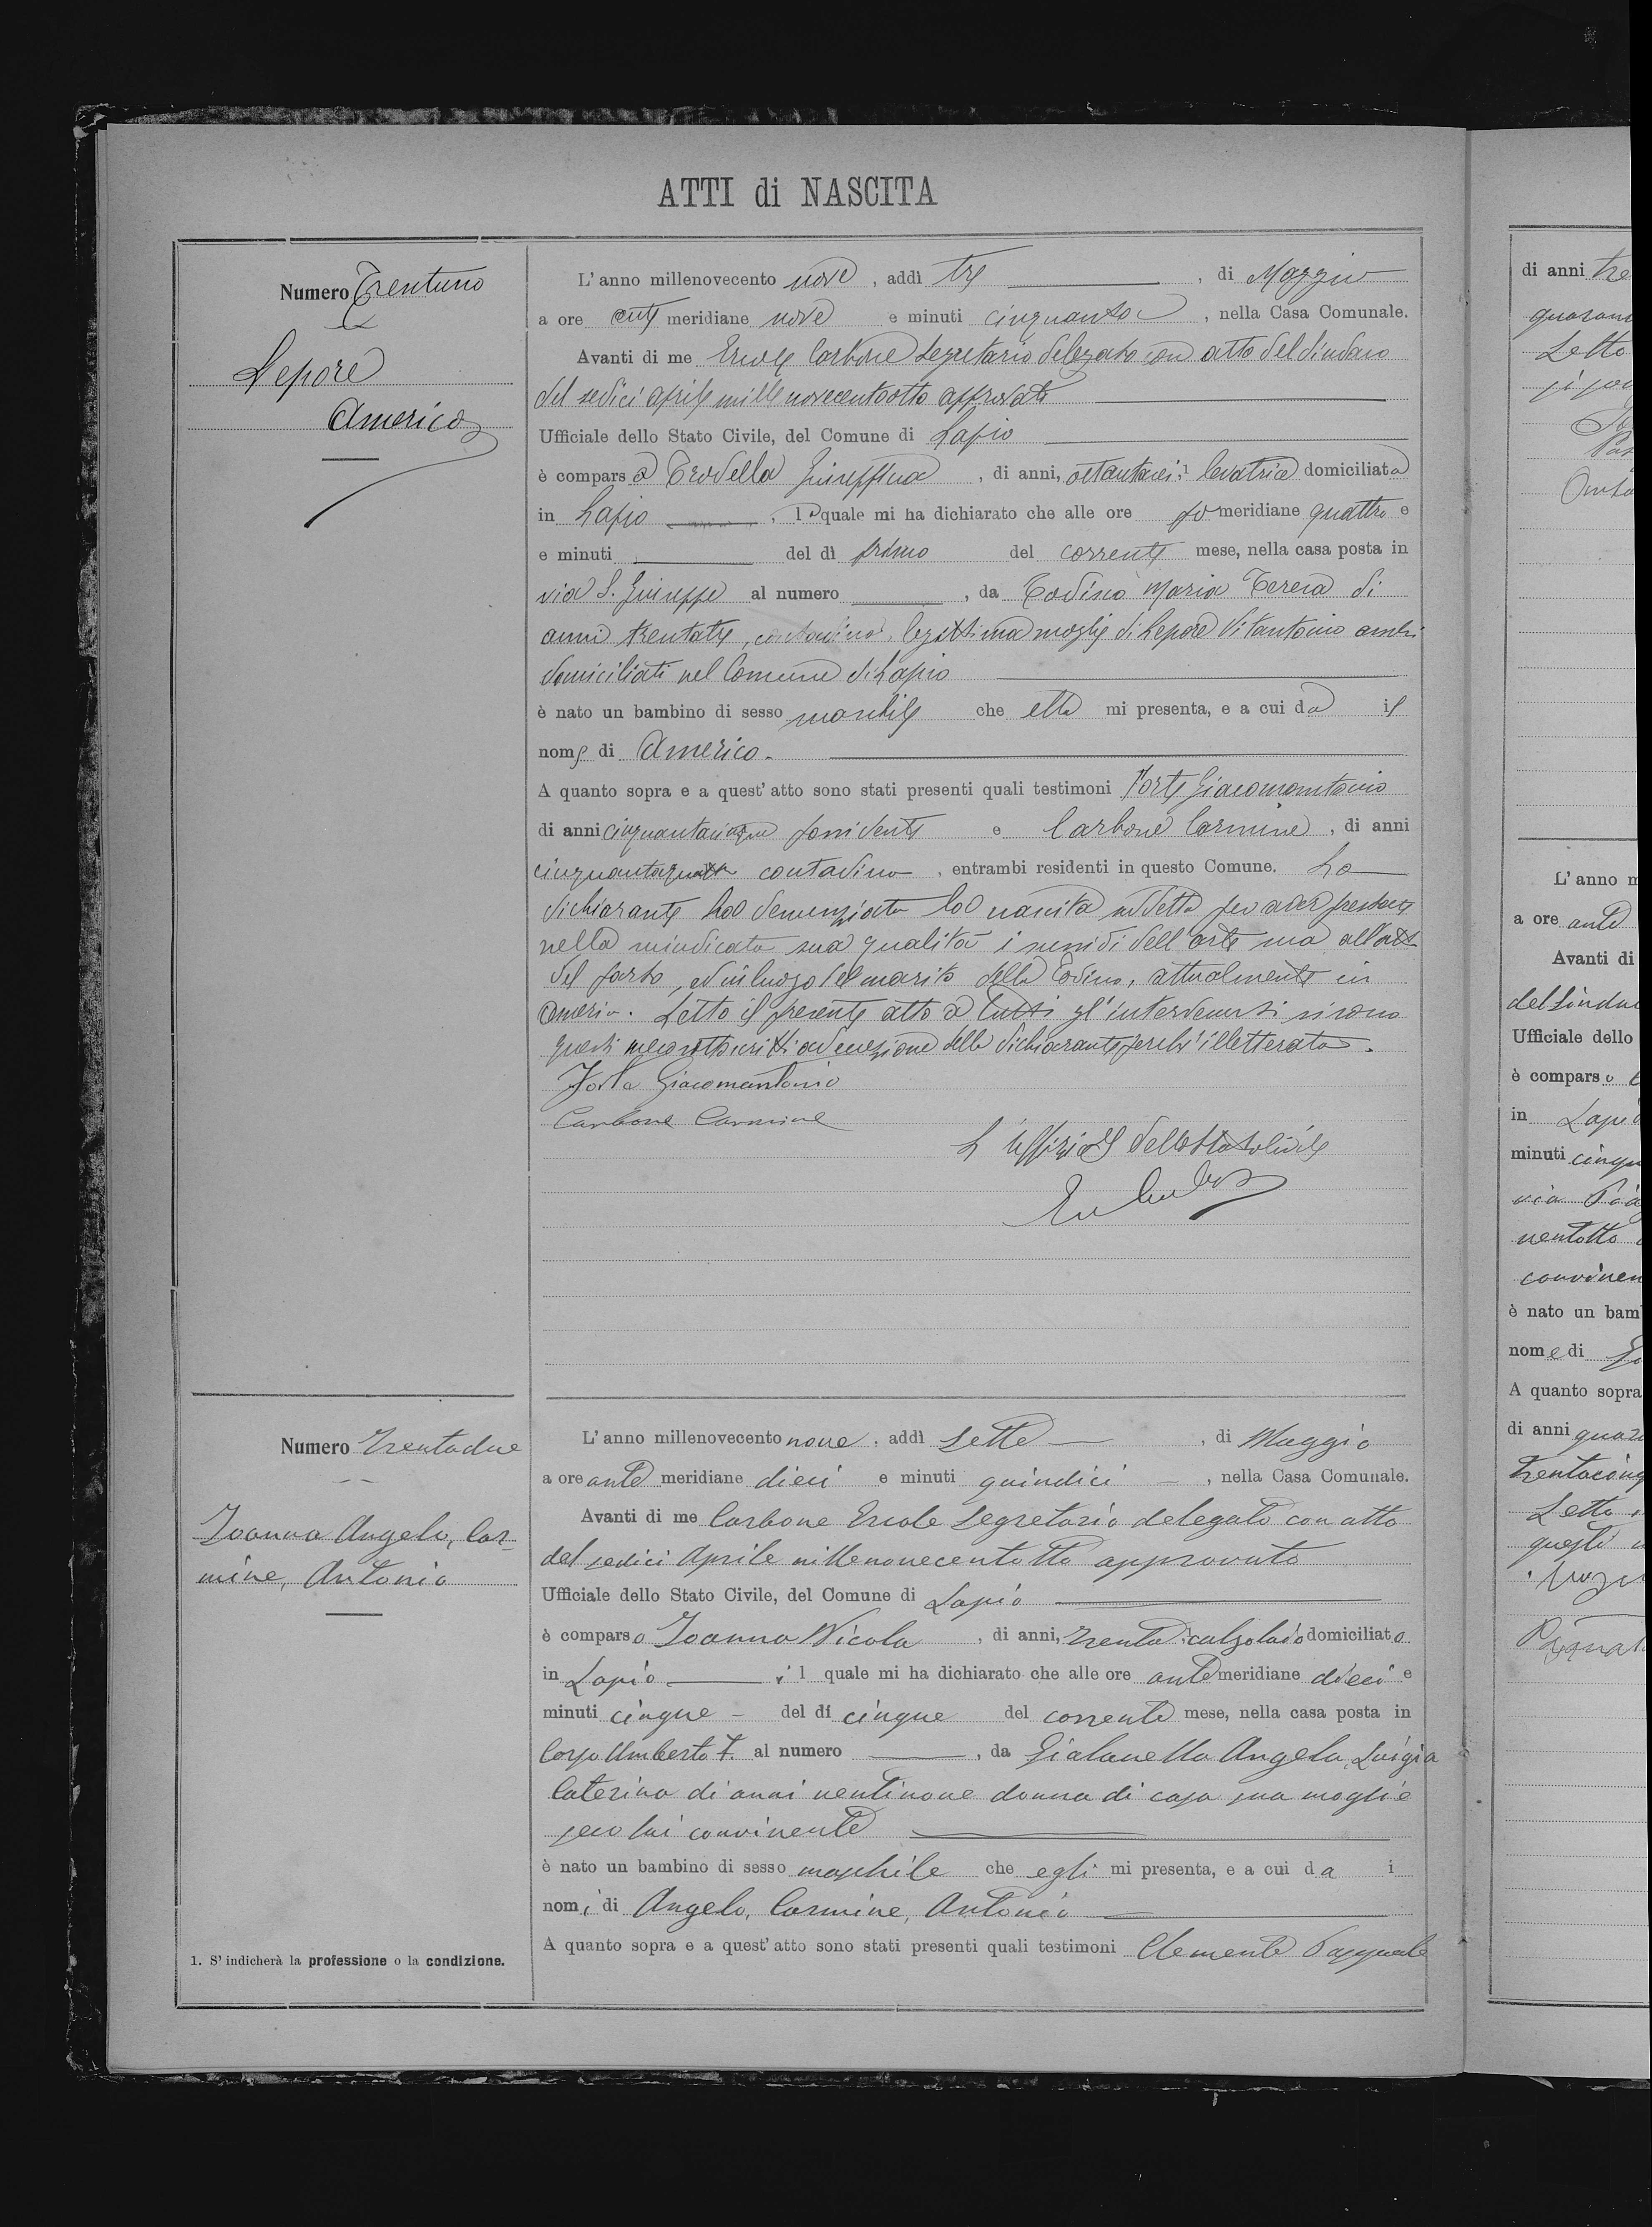 ATTI di NASCITA
Numero Trentuno
Lepore
Americo
L'anno millenovecento nove, addì tre, di Maggio
a ore anti meridiane nove e minuti cinquanta, nella Casa Comunale.
Avanti di me Ercole Carbone Segretario delegato con atto del Sindaco
del sedici aprile mille novecentootto approvato
Ufficiale dello Stato Civile, del Comune di Lapio
è comparsa Trodella Giuseppina, di anni, ottantasei, 1 levatrice domiciliata
in Lapio, la quale mi ha dichiarato che alle ore po meridiane quattro e
e minuti del dì primo del corrente mese, nella casa posta in
via S. Giuseppe al numero, da Todino Maria Teresa di
anni trentatre, contadina, legittima moglie di Lepore Vitantonio ambi
domiciliati nel Comune di Lapio
è nato un bambino di sesso maschile che ella mi presenta, e a cui da il
nome di Americo.
A quanto sopra e a quest'atto sono stati presenti quali testimoni Forte Giacomantonio
di anni cinquantacinque possidente e Carbone Carmine, di anni
cinquantaquattro contadino, entrambi residenti in questo Comune. La
dichiarante ha denunziata la nascita suddetta per aver prestato
nella suindicata sua qualità i sussidi dell'arte sua all'atto
del parto, ed in luogo del marito della Todino, attualmente in
America. Letto il presente atto a tutti gl'intervenuti si sono
questi meco sottoscritti ad eccezione della dichiarante perché illetterata.
Forte Giacomantonio
Carbone Carmine
L'Uffiziale dello Stato Civile
Numero Trentadue
Joanna Angelo, Car-
mine, Antonio
L'anno millenovecento nove, addì Sette, di Maggio
a ore ante meridiane dieci e minuti quindici, nella Casa Comunale.
Avanti di me Carbone Ercole Segretario delegato con atto
del sedici Aprile millenovecentotto approvato
Ufficiale dello Stato Civile, del Comune di Lapio
è comparso Joanna Nicola, di anni, trenta 1 calzolaio domiciliato
in Lapio, il quale mi ha dichiarato che alle ore ante meridiane dieci e
minuti cinque del dì cinque del corrente mese, nella casa posta in
Corso Umberto I. al numero, da Gialanella Angela, Luigia
Caterina di anni ventinove donna di casa sua moglie
seco lui convivente
è nato un bambino di sesso maschile che egli mi presenta, e a cui da i
nomi di Angelo, Carmine, Antonio
A quanto sopra e a quest'atto sono stati presenti quali testimoni Clemente Pasquale
1. S'indicherà la professione o la condizione.
di anni tre
Letto
L'anno m
a ore ante
Avanti di
del Sindac
Ufficiale dello
è comparso
in Lapio
minuti cinqu
via
ventotto
conviven
è nato un bam
nome di
A quanto sopra
di anni quara
trentacinq
Letto
questi